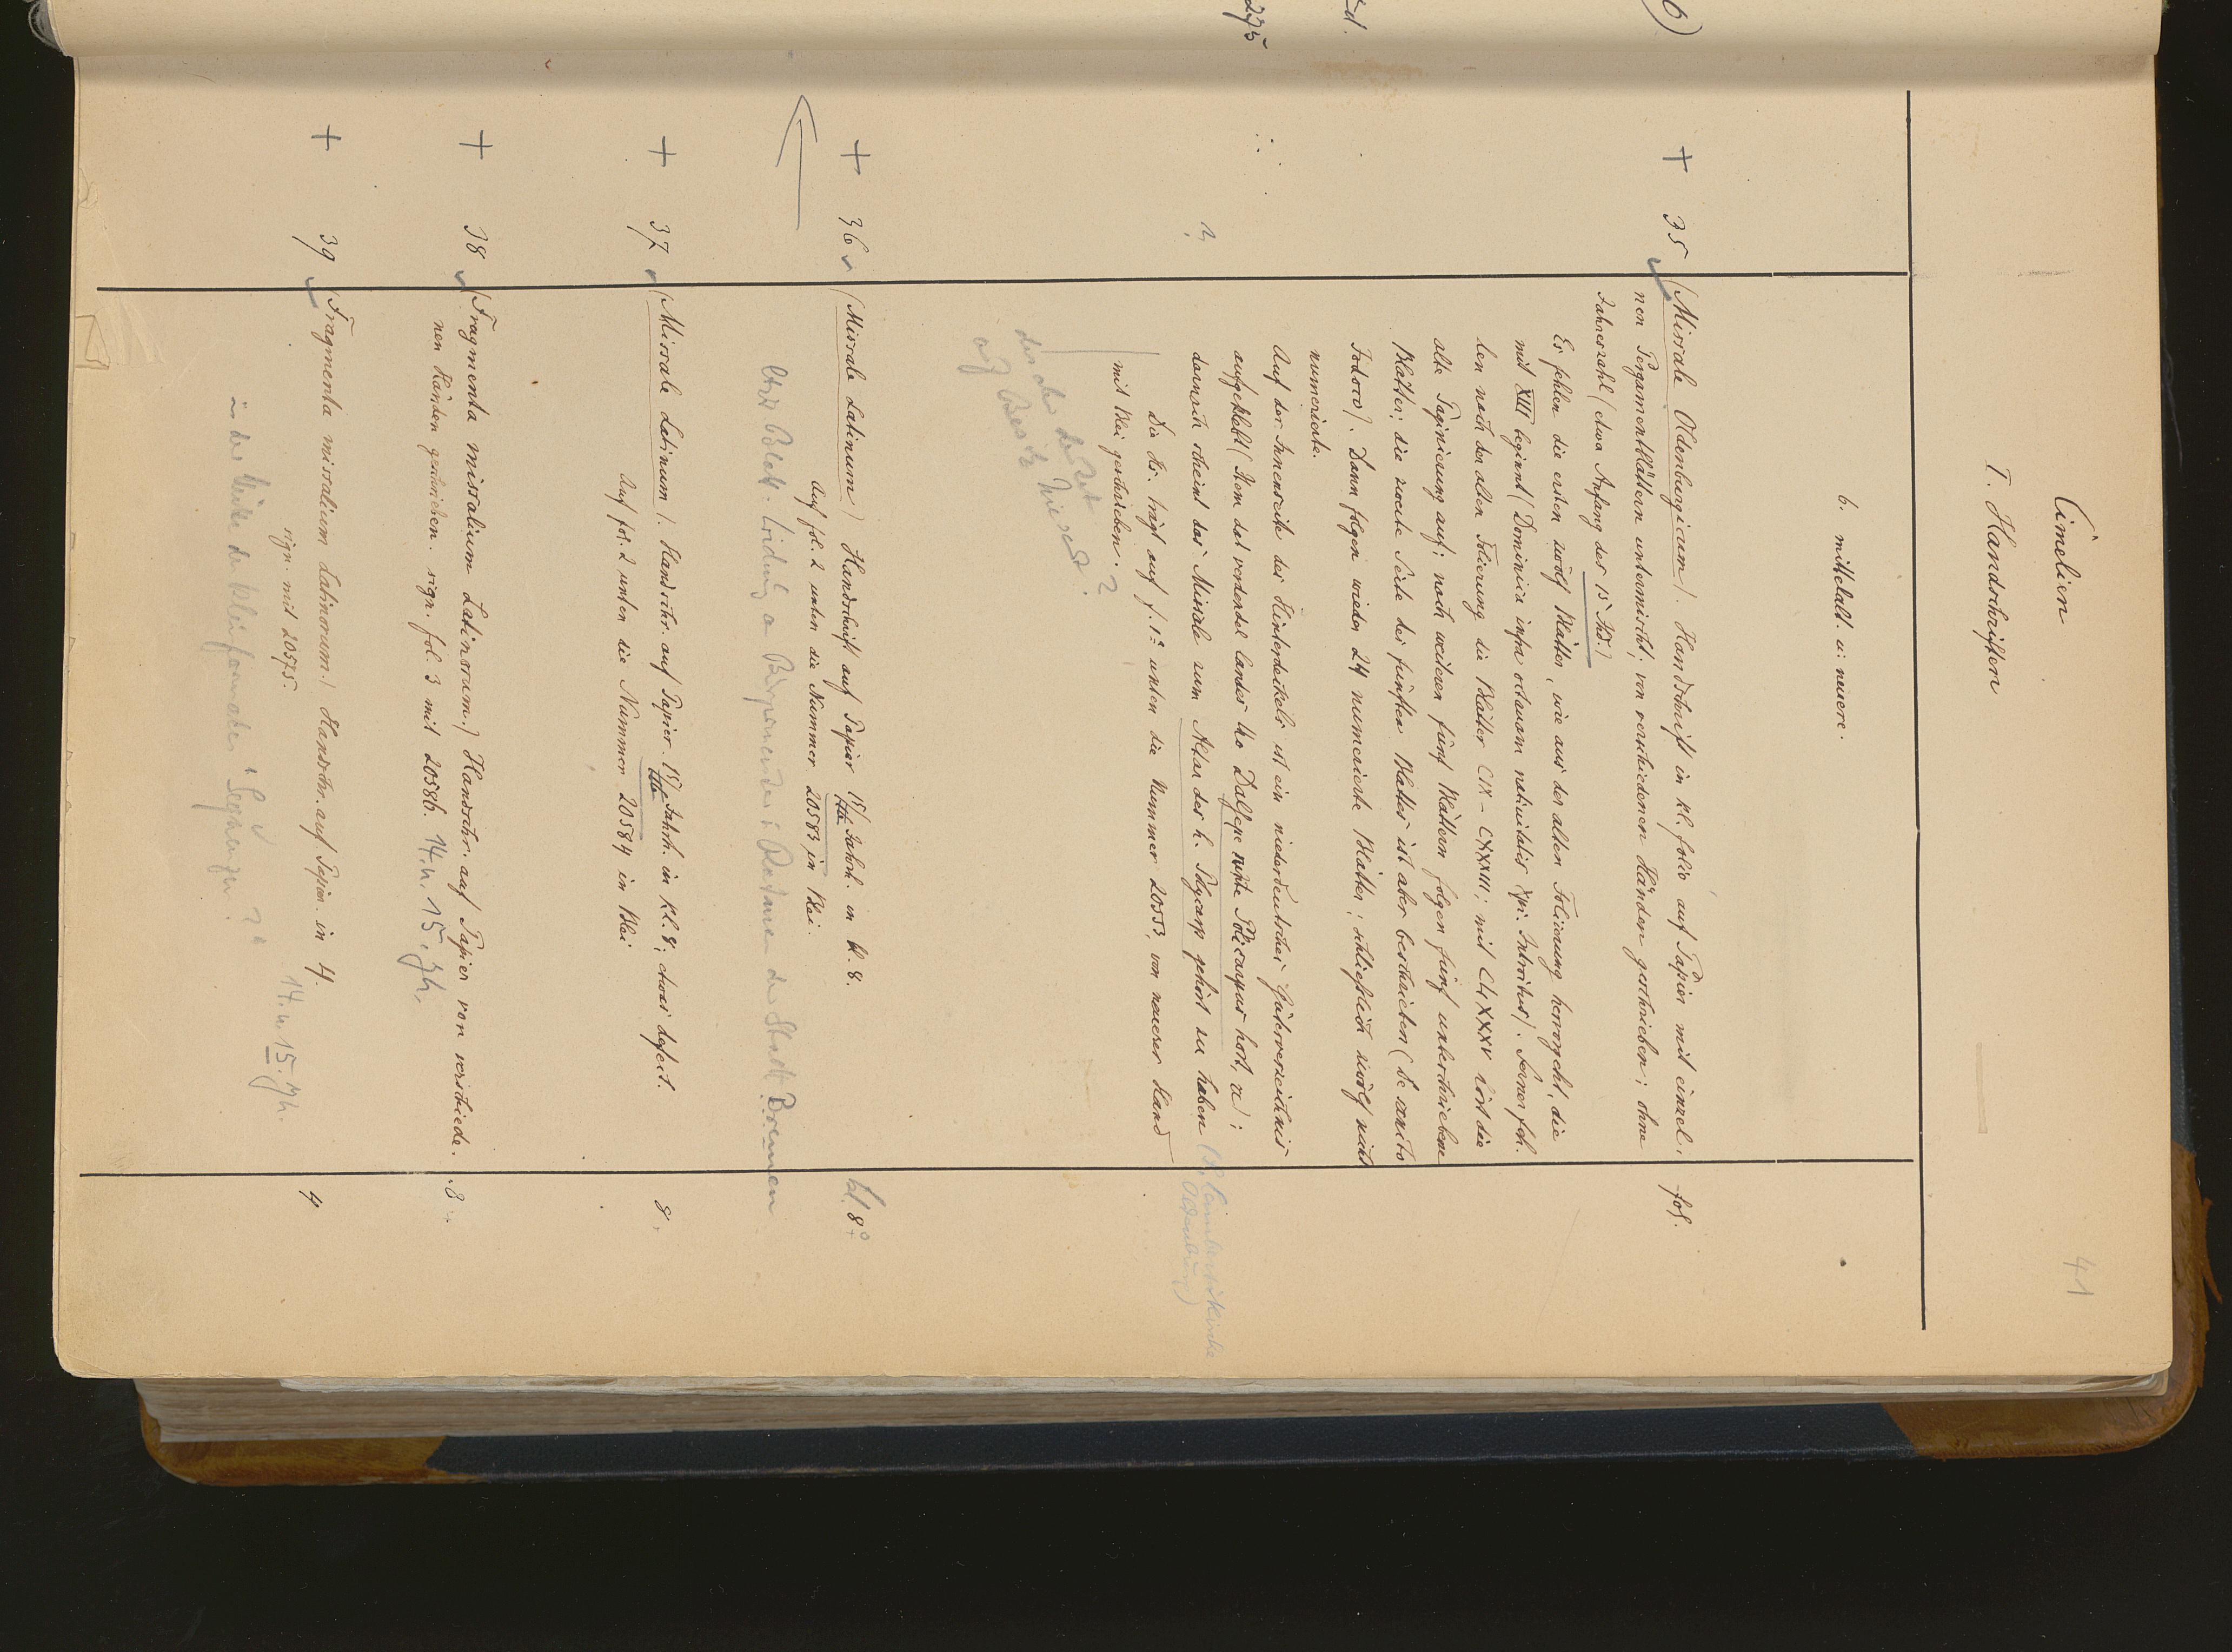 41
Cimelien
I. Handschriften
b. mittelalt. u. neuere.
+ 35 (Missale Oldenburgicum). Handschrift in kl. folio auf Papier mit einzel- fol.
nen Pergamentblättern untermischt; von verschiedenen Händen geschrieben; ohne
Jahreszahl (etwa Anfang des 15 Jhd.)
Es fehlen die ersten zwölf Blätter, wie aus der alten Foliierung hervorgeht, die
mit XIII beginnt (Dominica infra octavam nativitatis xpi. Introitus). Ferner feh-
len nach der alten Foliierung die Blätter CIX - CXXIII; mit CLXXXV hört die
alte Paginierung auf; nach weiteren fünf Blättern folgen fünf unbeschriebene
Blätter; die zweite Seite des fünften Blattes ist aber beschrieben (De sancto
Jodoco). Dann folgen wieder 24 numerierte Blätter; schliesslich zwölf nicht
numerierte.
Auf der Innenseite des Hinterdeckels ist ein niederdeutsches Güterverzeichnis
aufgeklebt (Item dat verndel landes tho Dalsepe sunte Policarpus hort, ec);
darnach scheint das Missale zum Altar des h. Polycarp gehört zu haben (St. Lambertikirche
Oldenburg)
Die Hs. trägt auf f. 1a unten die Nummer 20553, von neuerer Hand
mit Blei geschrieben.
?
auf Besitz Niesert?
+ 36 (Missale Latinum) Handschrift auf Papier 15/ Jahrh. in kl. 8. kl. 8°
Auf fol. 2 unten die Nummer 20583 in Blei.
a Bürgermeister & Ratmer der Stadt Bremen
+ 37 (Missale Latinum). Handschr. auf Papier 15/ Jahrh. in kl. 8; etwas defect. 8.
Auf fol. 2 unten die Nummer 20584 in Blei
+ 38 (Fragmenta missalium Latinorum.) Handschr. auf Papier von verschiede- 8.
nen Händen geschrieben. sign. fol. 3 mit 20586. 14. u. 15. Jh.
+ 39 (Fragmenta missalium Latinorum.) Handschr. auf Papier. in 4. 4
sign. mit 20575. 14. u. 15. Jh.
in der Lücke der kleinformate "Sequenzen?"